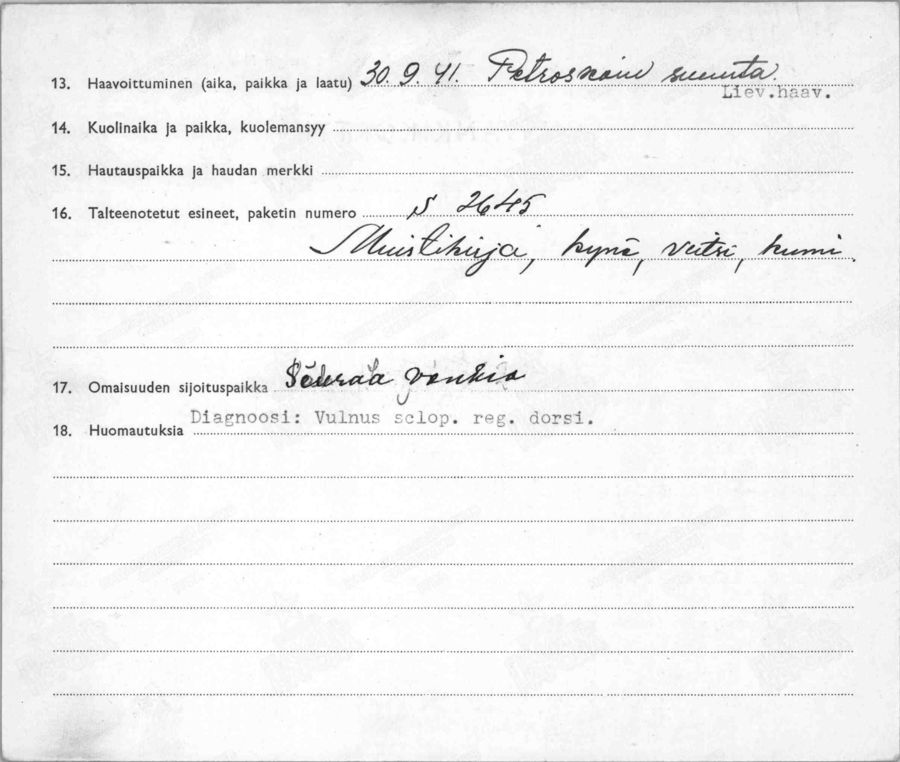 13. Haavoittuminen (aika, paikka ja laatu) 30.9.41. Petroskoin suunta.
Liev.haav.
14. Kuolinaika ja paikka, kuolemansyy
15. Hautauspaikka ja haudan merkki
16. Talteenotetut esineet, paketin numero S 2645
Muistikirja, kynä, veitsi, kumi.
17. Omaisuuden sijoituspaikka Seuraa vankia
18. Huomautuksia Diagnoosi: Vulnus sclop. reg. dorsi.